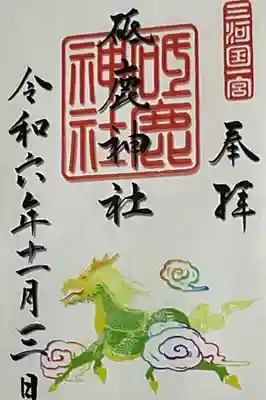 三河国一宮
奉拝
砥鹿神社
砥鹿神社
令和六年十一月三日